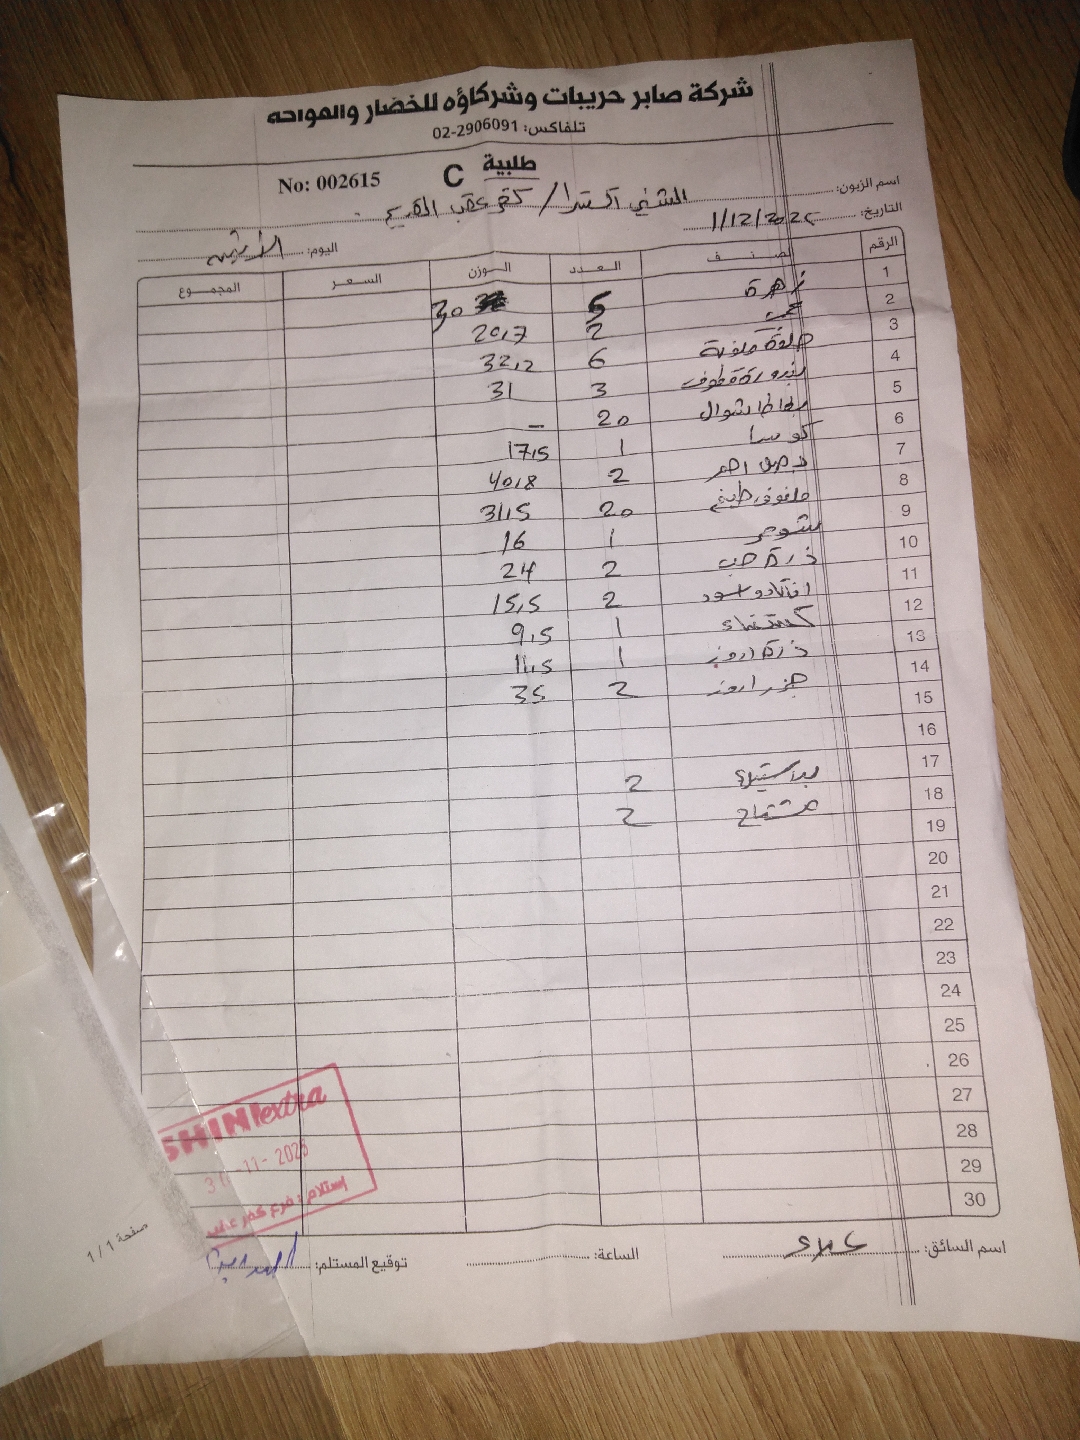 شركة صابر حريبات وشركاؤه للخضار والفواكه
تلفاكس: 02-2906091
طلبية
No: 002615 C
اسم الزبون: الشني اكسترا / كفر عقب
التاريخ: 1/12/2025
اليوم: الاثنين
الرقم الصنف العدد الوزن السعر المجموع
1 زهرة 5 30
2 2 20,7
3 6 32,2
4 بندورة قطوف 3 31
5 بطاطا شوال 20 –
6 كوسا 1 17,5
7 بصل احمر 2 40,8
8 ملفوف 20 31,5
9 شومر 1 16
10 ذرة حب 2 24
11 افوكادو اسود 2 15,5
12 كستناء 1 9,5
13 ذرة اروز 1 11,5
14 جزر اروز 2 35
15
16
17 2
18 مشتاح 2
19
20
21
22
23
24
25
26
27
28
29
30
SHINI extra
30-11-2025
إستلام: فرع كفر عقب
اسم السائق: علاء
الساعة:
توقيع المستلم:
صفحة 1 / 1